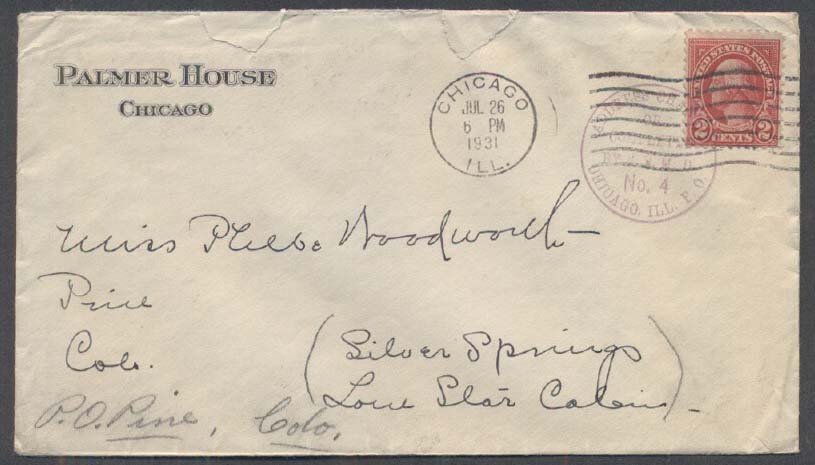 PALMER HOUSE
CHICAGO
CHICAGO
JUL 26
6 PM
1931
ILL.
UNITED STATES POSTAGE
2 CENTS 2
ADDRESS
OR
No. 4
CHICAGO, ILL. P.O.
Miss Phebe Woodworth
Pine
Colo.
(Silver Springs
Lone Star Cabin)
P.O. Pine, Colo.